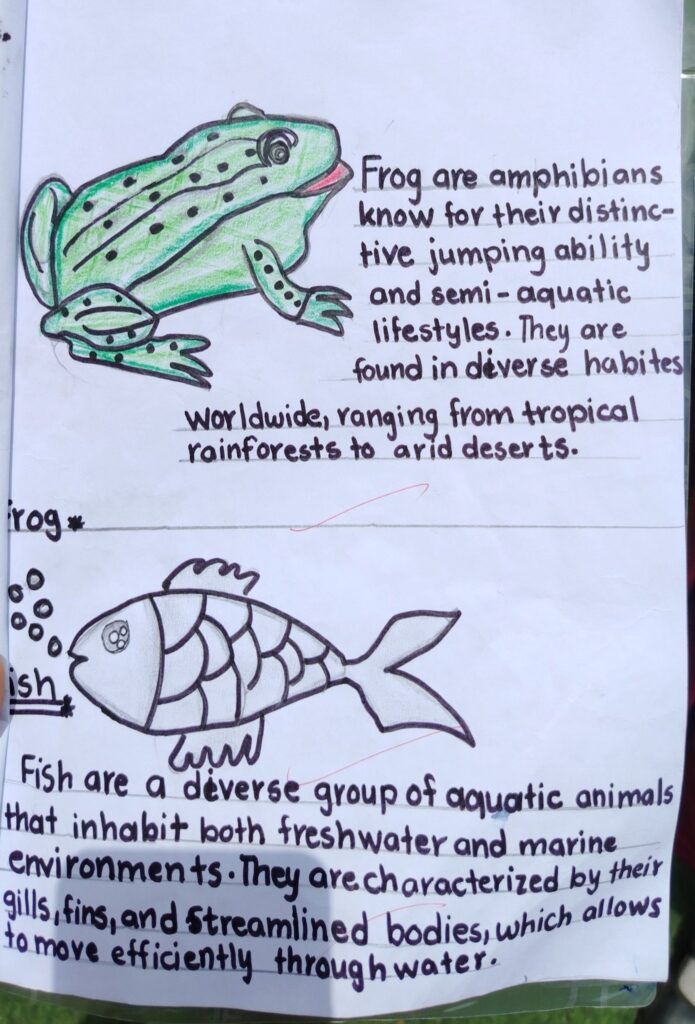 Frog are amphibians
know for their distinc-
tive jumping ability
and semi-aquatic
lifestyles. They are
found in diverse habites
worldwide, ranging from tropical
rainforests to arid deserts.
rog*
ish
Fish are a diverse group of aquatic animals
that inhabit both freshwater and marine
environments. They are characterized by their
gills, fins, and streamlined bodies, which allows
to move efficiently through water.